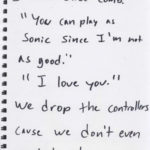 "You can play as
Sonic Since I'm not
as good."
"I love you."
We drop the controllers
cause we don't even